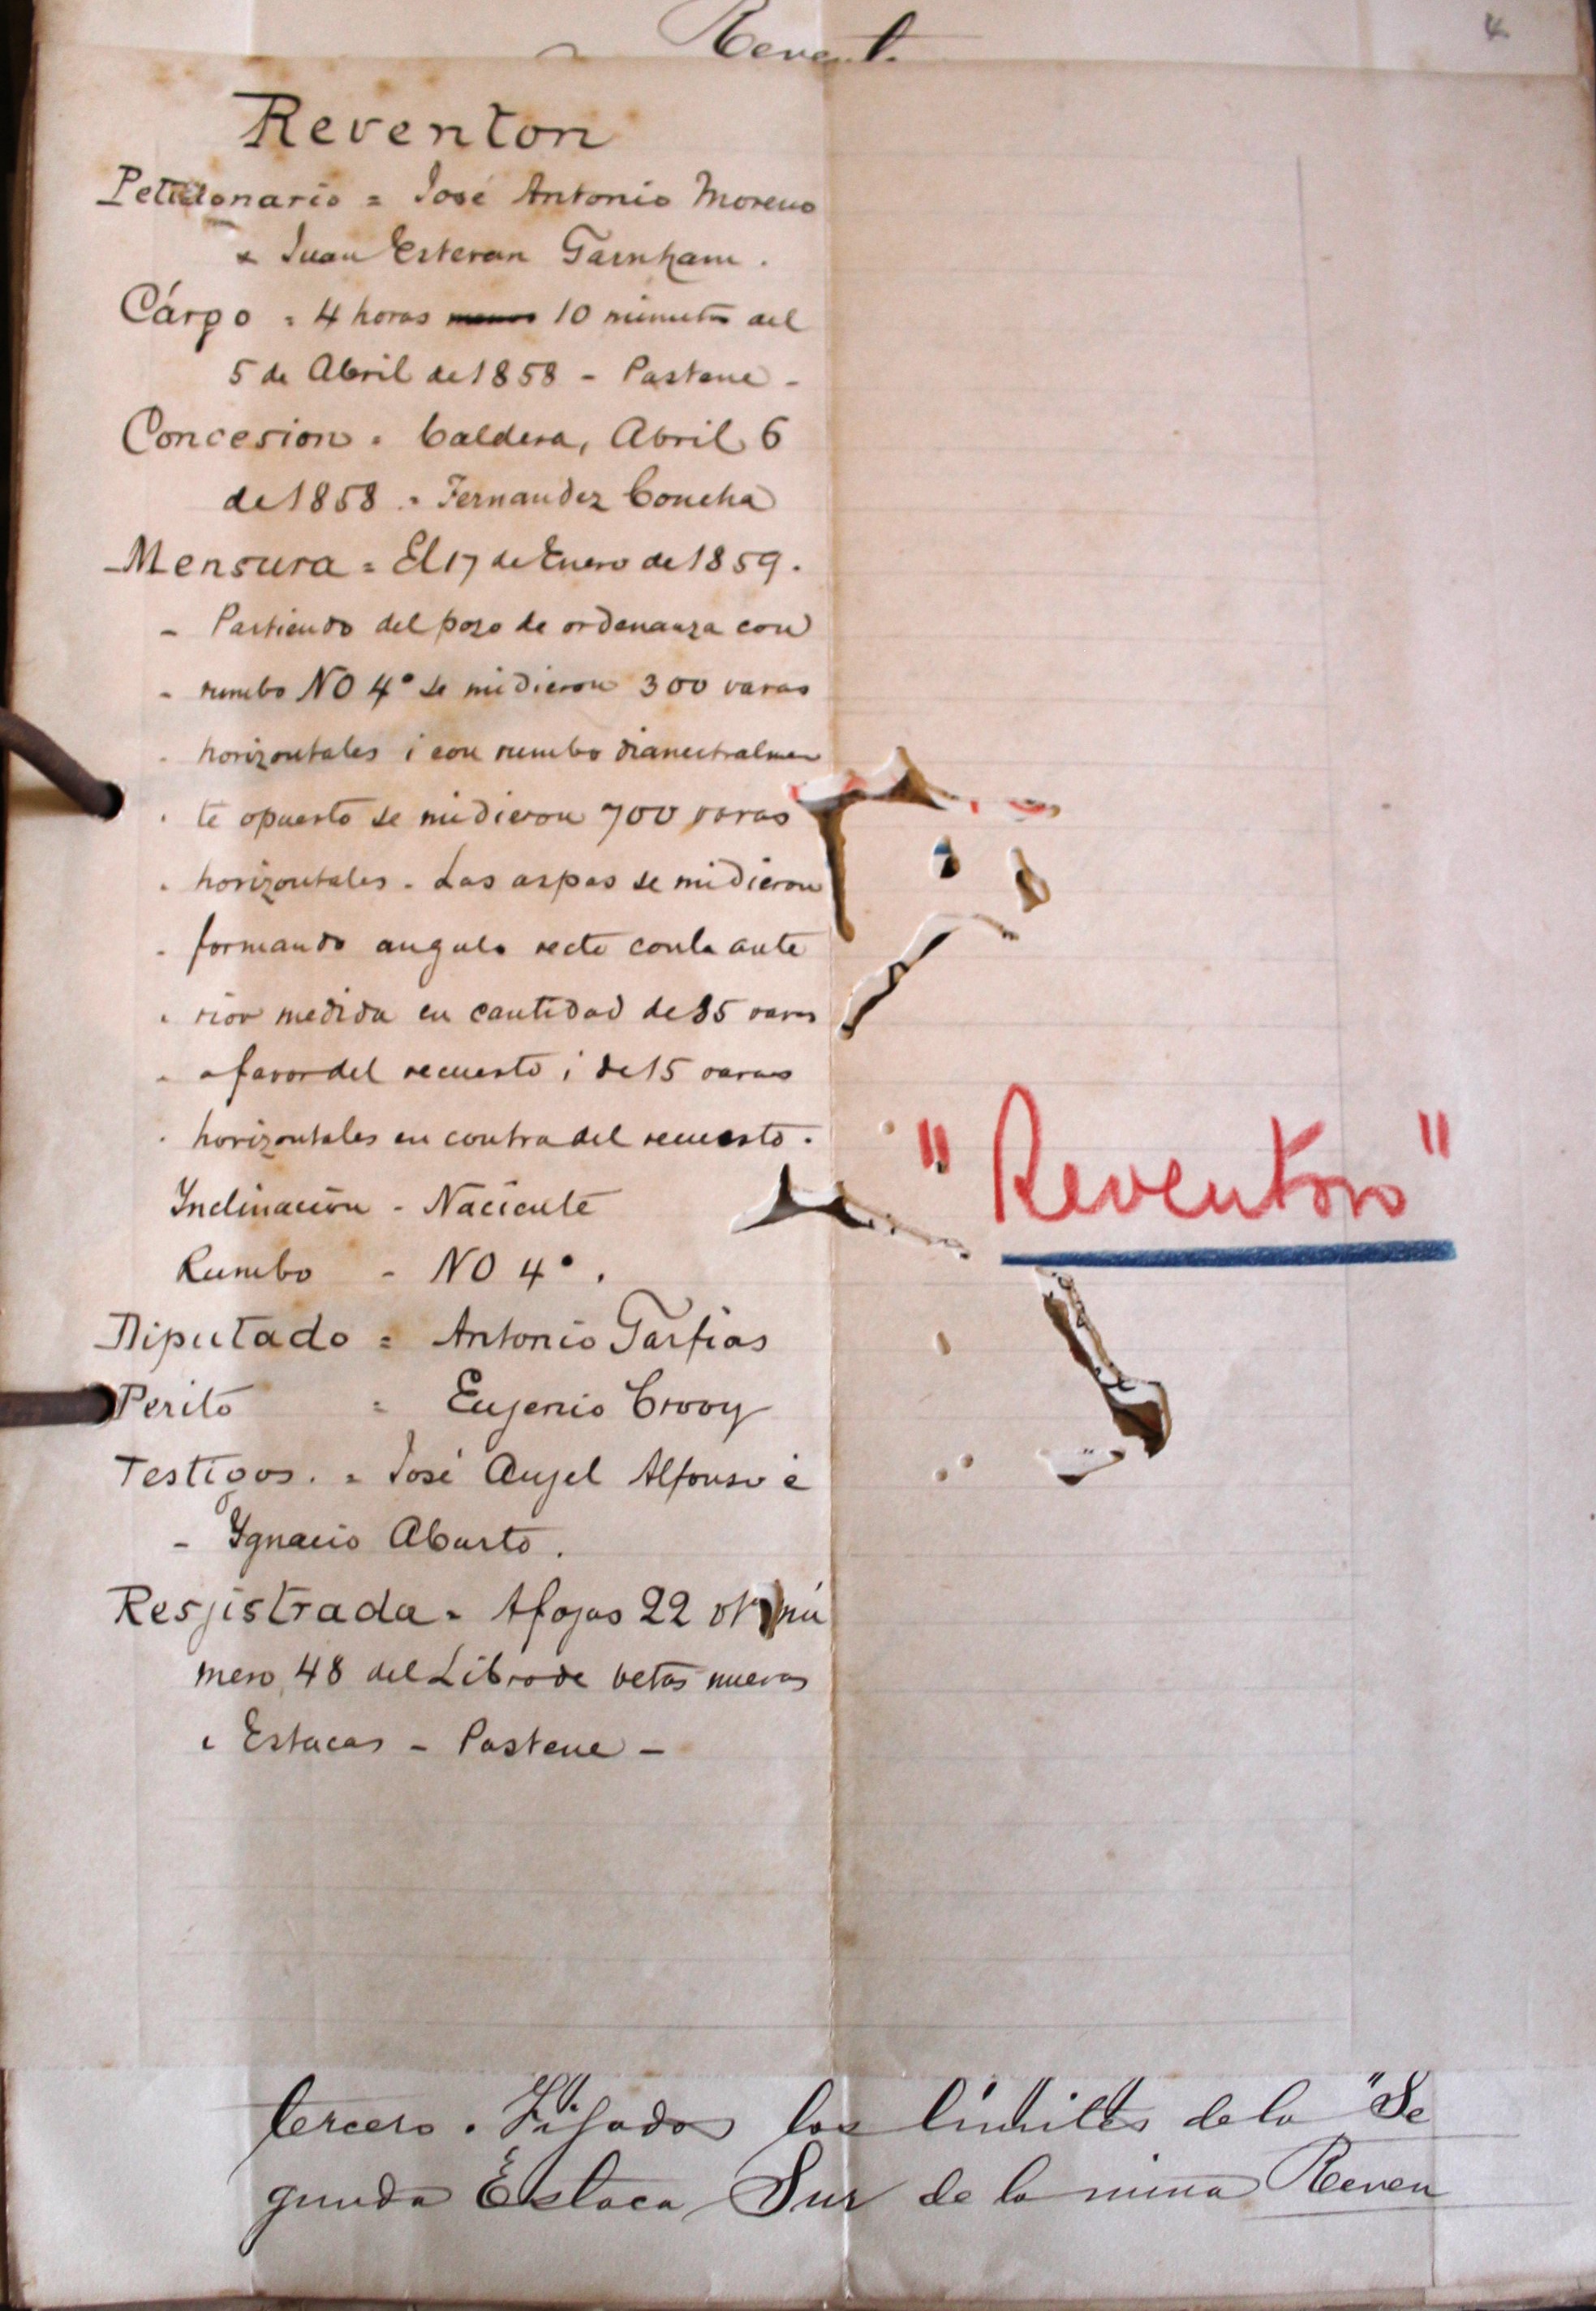 Revent
4
Reventon
Peticionario = José Antonio Moreno
Juan Estevan Garnham.
Cárgo = 4 horas 10 minutos del
5 de Abril de 1858 - Pastene -
Concesion = Caldera, Abril 6
de 1858 = Fernandez Concha
Mensura = El 17 de Enero de 1859.
- Partiendo del pozo de ordenanza con
- rumbo NO 4° se midieron 300 varas
horizontales i con rumbo diametralmen
te opuesto se midieron 700 varas
horizontales. Las aspas se midieron
formando angulo recto con la ante
rior medida en cantidad de 85 varas
a favor del recuesto i de 15 varas
horizontales en contra del recuesto.
Inclinacion - Naciente
Rumbo - NO 4°.
"Reventon"
Diputado = Antonio Garfias
Perito = Eugenio Crooy
Testigos. = José Anjel Alfonso é
- Ygnacio Abasto.
Resjistrada = A fojas 22 nú
mero 48 del Libro de vetas nuevas
i Estacas - Pastene -
tercero. Fijados los límites de la "Se
gunda Estaca Sur de la mina Reven